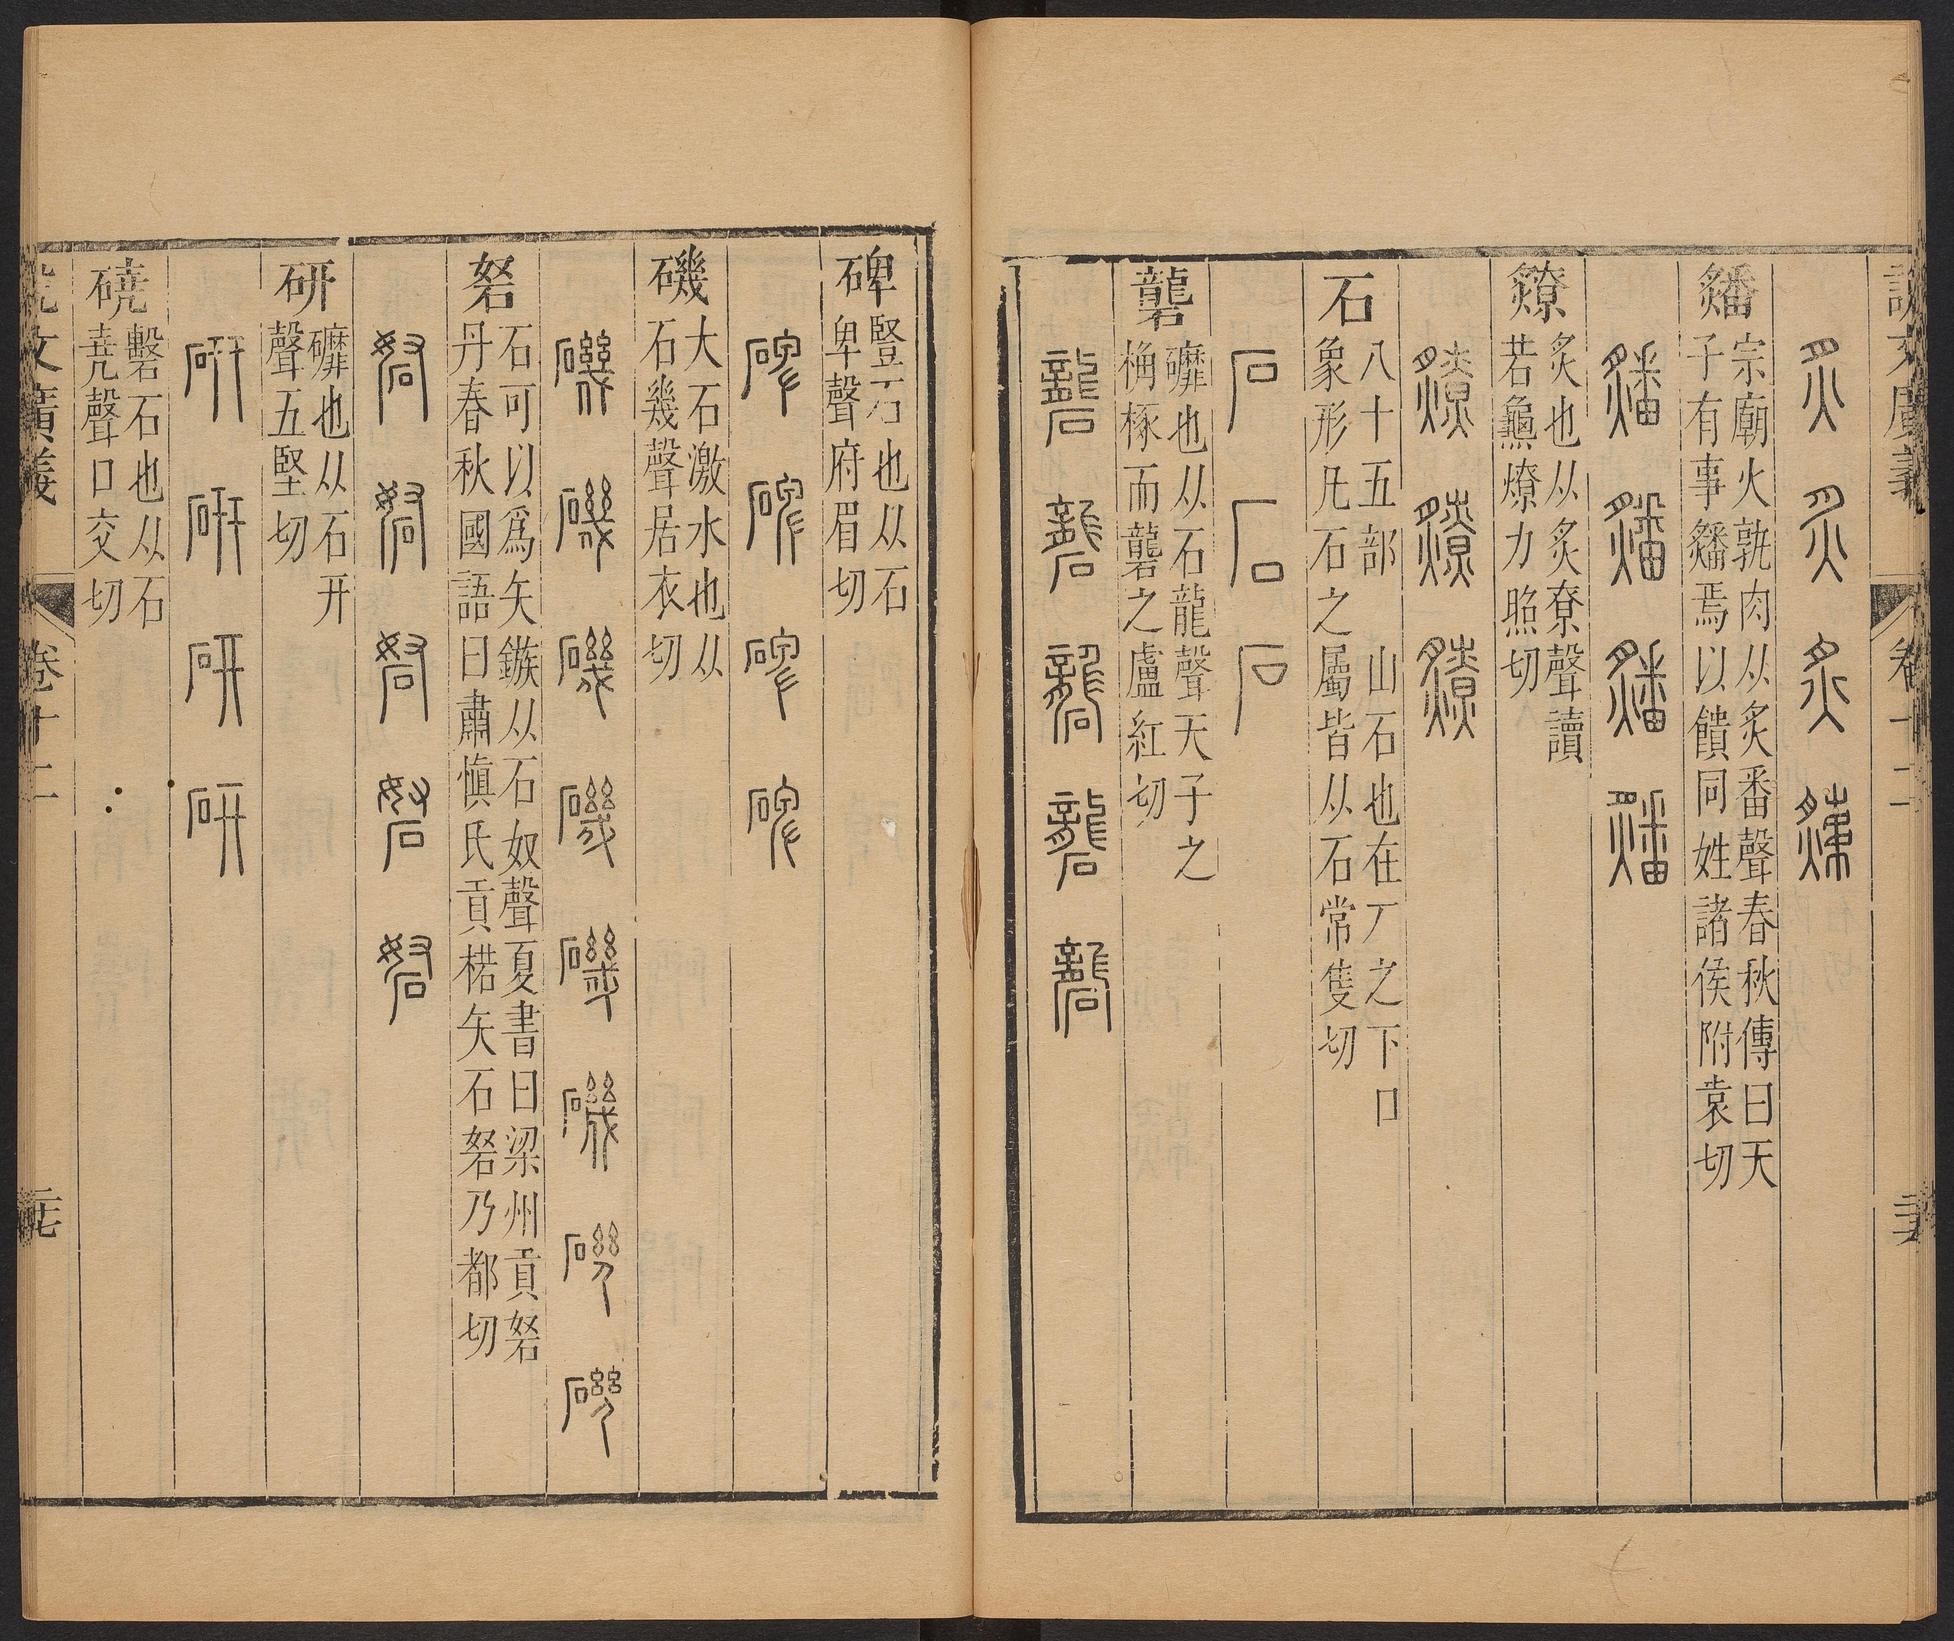 說文廣義
卷十二
炙炙炙𤒅
𤒦
宗廟火孰肉从炙番聲春秋傳曰天
子有事𤒦焉以饋同姓諸侯附袁切
𤒦𤒦𤒦𤒦
𤒷
炙也从炙尞聲讀
若龜燎力照切
𤒷𤒷𤒷
石
八十五部　山石也在厂之下口
象形凡石之屬皆从石常隻切
石石石
礱
䃺也从石龍聲天子之
桷椓而礱之盧紅切
礱礱礱礱礱
碑
豎石也从石
卑聲府眉切
碑碑碑碑
磯
大石激水也从
石幾聲居衣切
磯磯磯磯磯磯磯磯
砮
石可以爲矢鏃从石奴聲夏書曰梁州貢砮
丹春秋國語曰肅愼氏貢楛矢石砮乃都切
砮砮砮砮砮
研
䃺也从石幵
聲五堅切
研研研研
磽
磬石也从石
堯聲口交切
說文廣義
卷十二